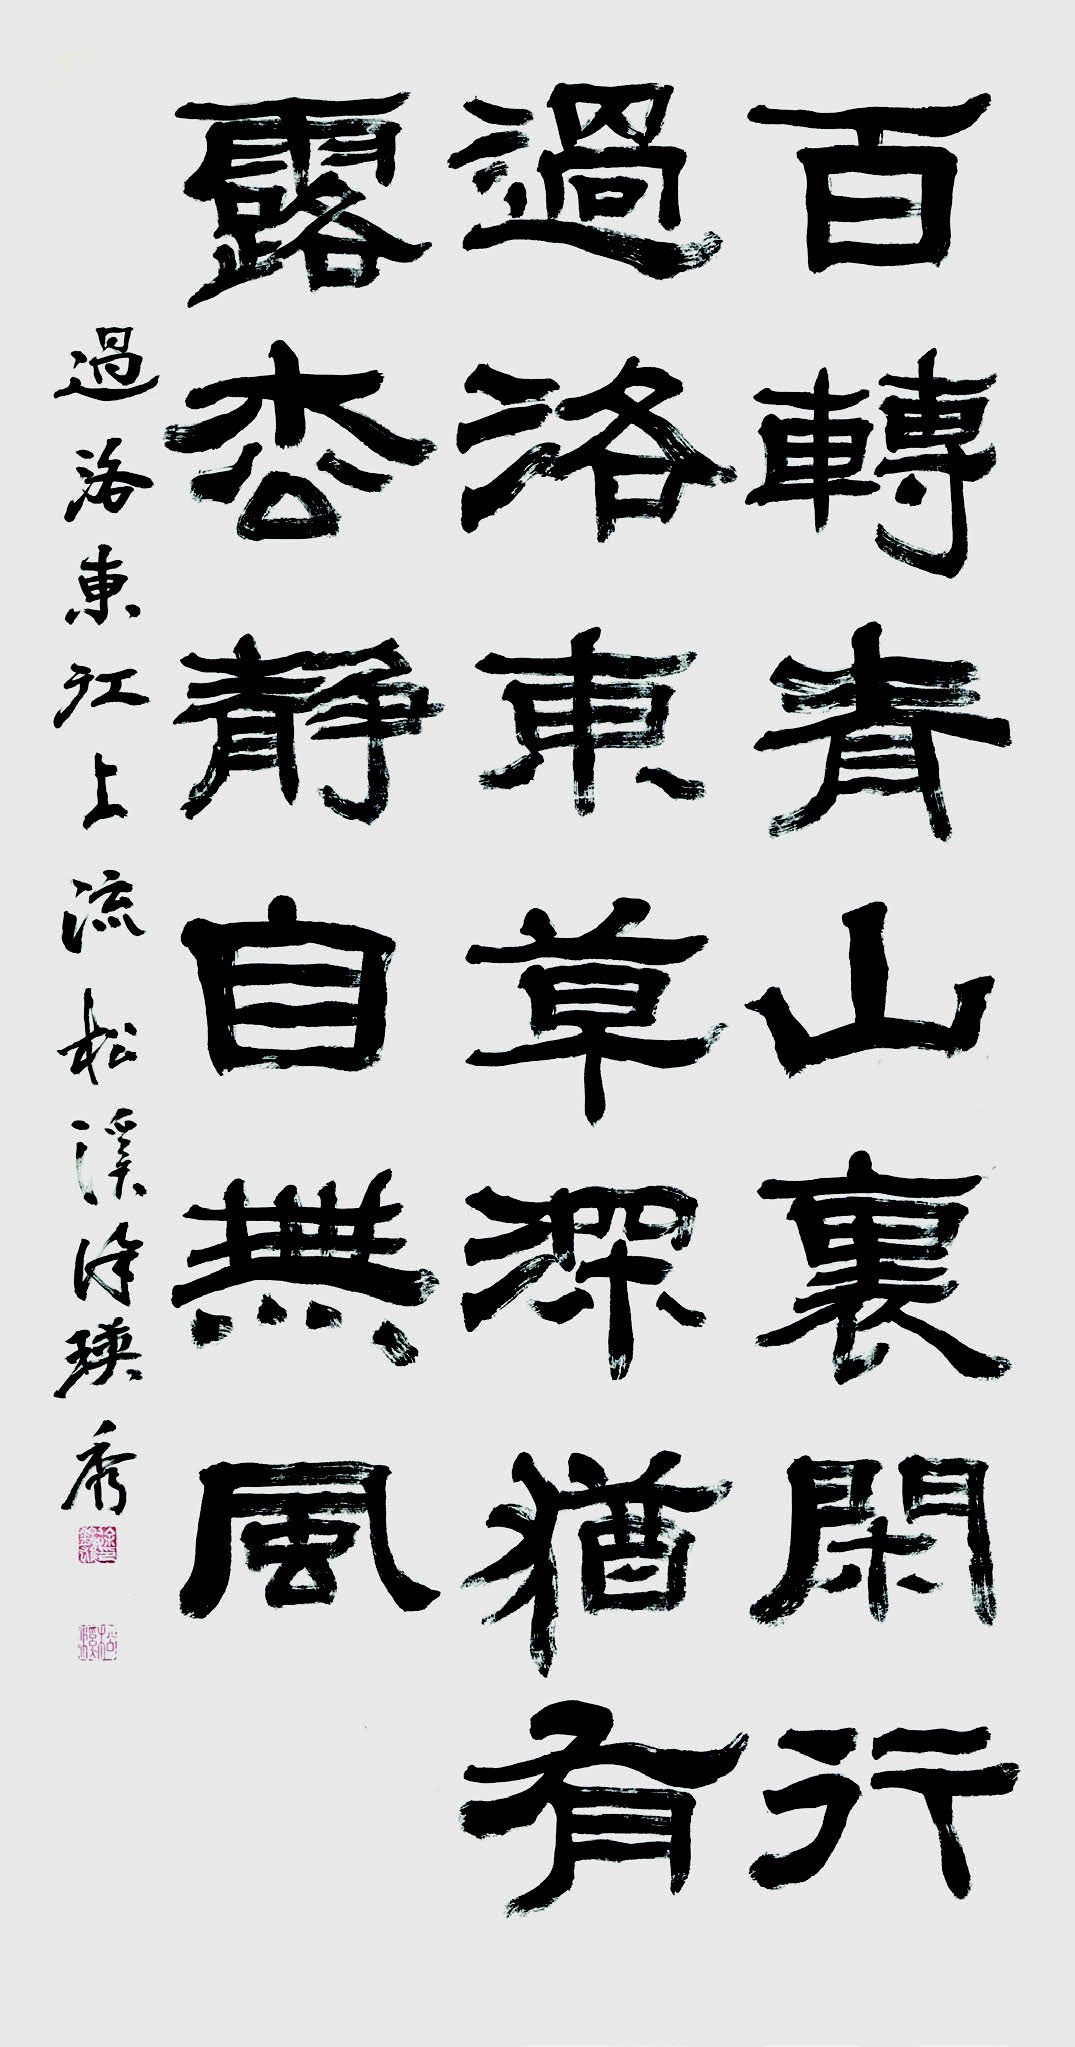 百轉青山裏閑行
過洛東草深猶有
露枩靜自無風
過洛東江上流松溪徐瑛秀
松溪